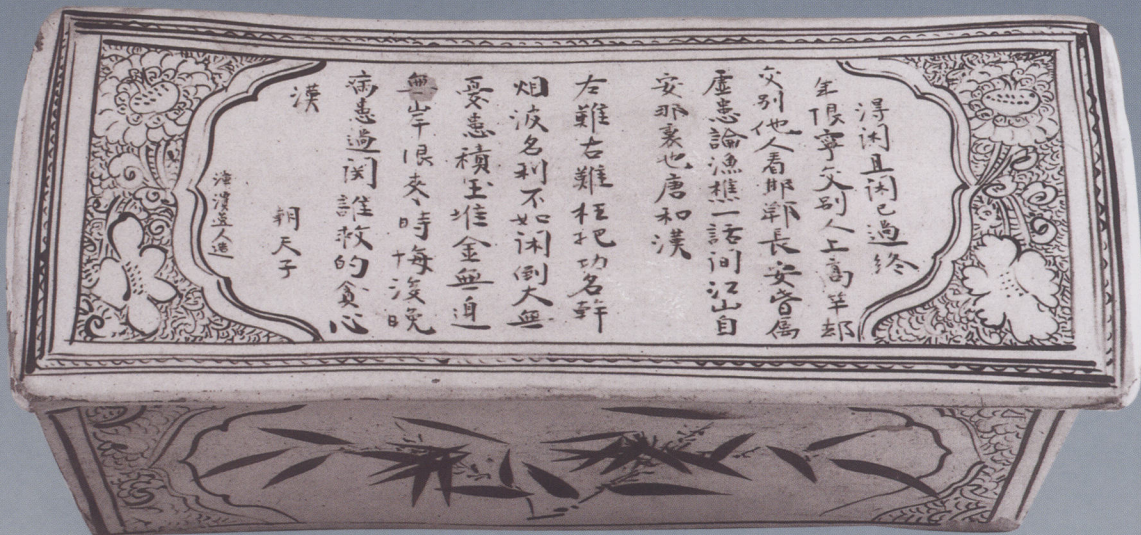 得闲且闲已過終
年限寜交别人上高竿却
交别他人看邯鄲長安皆爲
虚患論漁樵一話间江山自
安那裏也唐和漢
左難右難枉把功名幹
烟波名利不如闲倒大無
憂患積玉堆金無邉
無岸限来時悔後晚
病患過関誰救的貪心
漢
朝天子
濱道人造